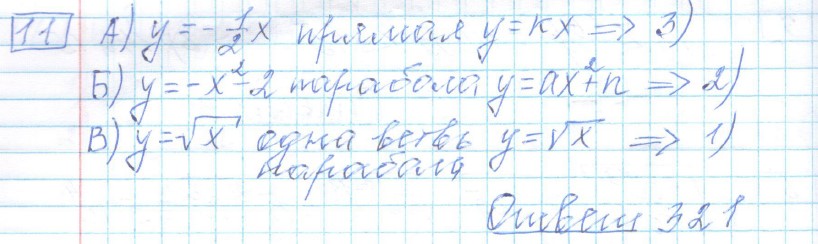 11 А) y = -1/2 x прямая y = kx => 3)
Б) y = -x² - 2 парабола y = ax² + n => 2)
В) y = √x одна ветвь y = √x => 1)
парабола
Ответ 321